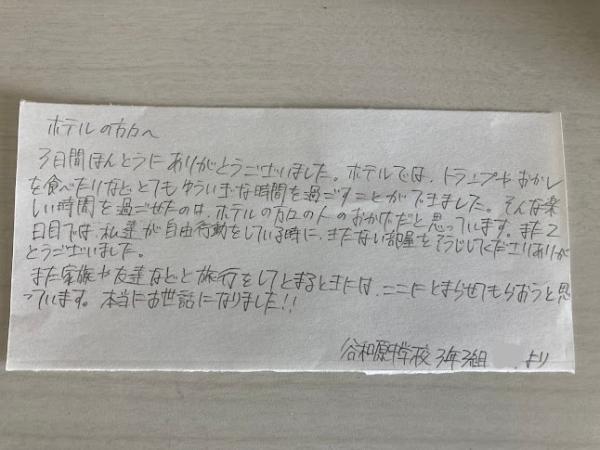 ホテルの方々へ
3日間ほんとうにありがとうございました。ホテルでは、トランプやおかし
を食べたりなどとてもゆういぎな時間を過ごすことができました。そんな楽
しい時間を過ごせたのは、ホテルの方々の人のおかげだと思っています。また2
日目では、私達が自由行動をしている時に、きたない部屋をそうじしてくださりありが
とうございました。
また家族や友達などと旅行をしてとまるときには、ここにとまらせてもらおうと思
っています。本当にお世話になりました!!
谷和原中学校3年3組 より